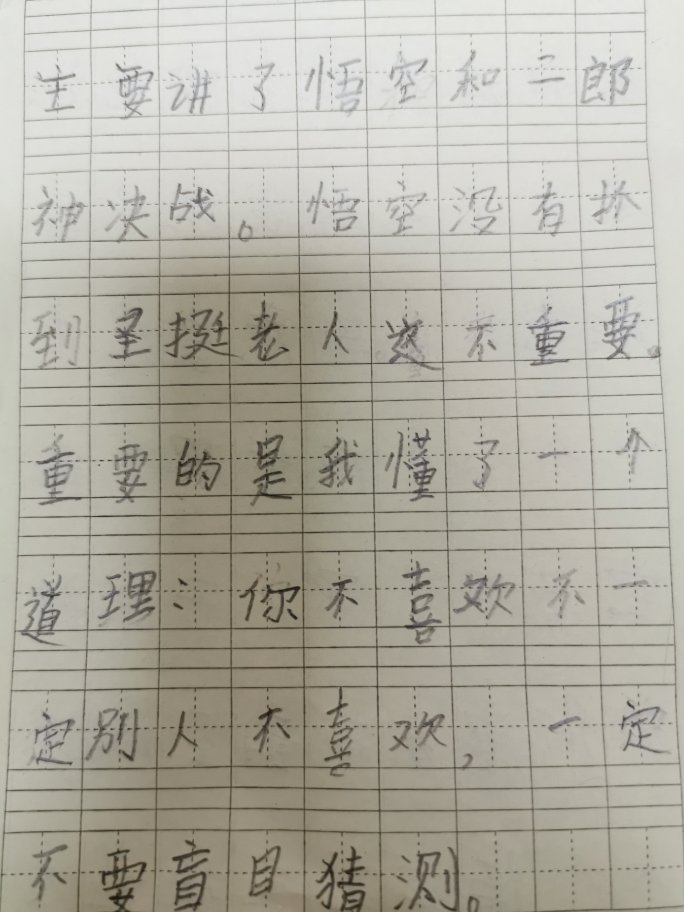 主要讲了悟空和二郎
神决战。悟空没有抓
到圣挺老人这不重要。
重要的是我懂了一个
道理:你不喜欢不一
定别人不喜欢,一定
不要盲目猜测。